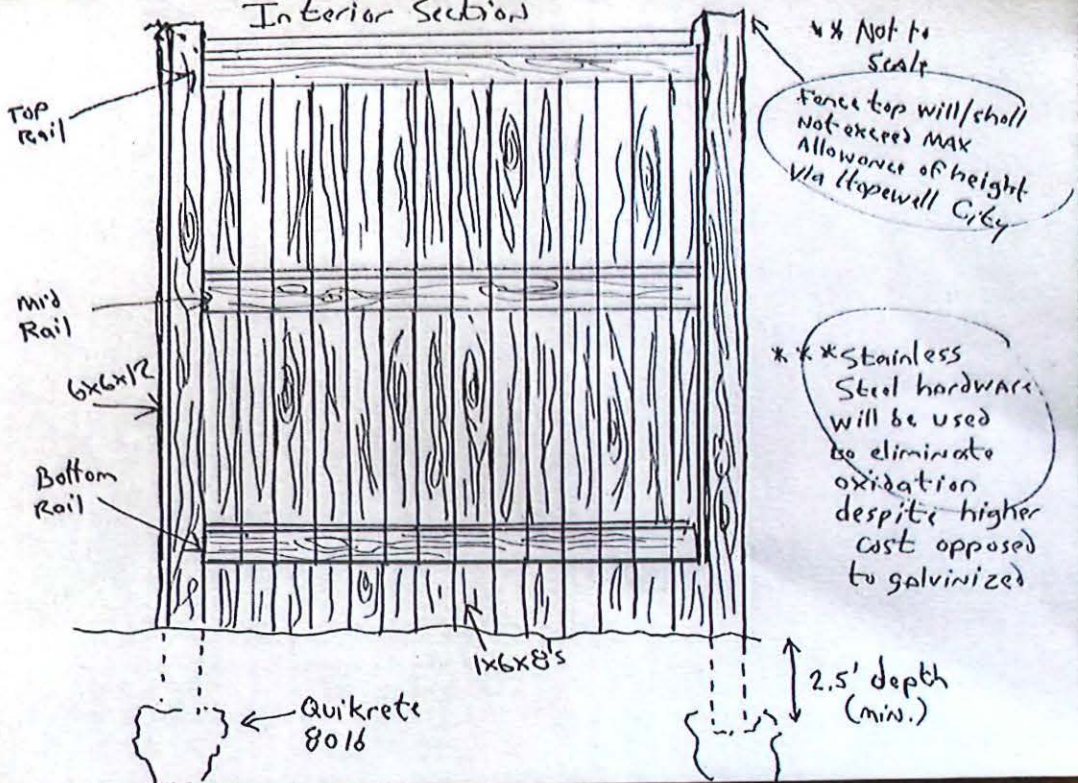 Interior Section
** Not to
Scale
Fence top will/shall
Not exceed MAX
Allowance of height
Via Hopewell City
Top
Rail
Mid
Rail
6x6x12
***Stainless
Steel hardware
will be used
to eliminate
oxidation
despite higher
cost opposed
to galvinized
Bottom
Rail
1x6x8's
2.5' depth
(min.)
Quikrete
80lb